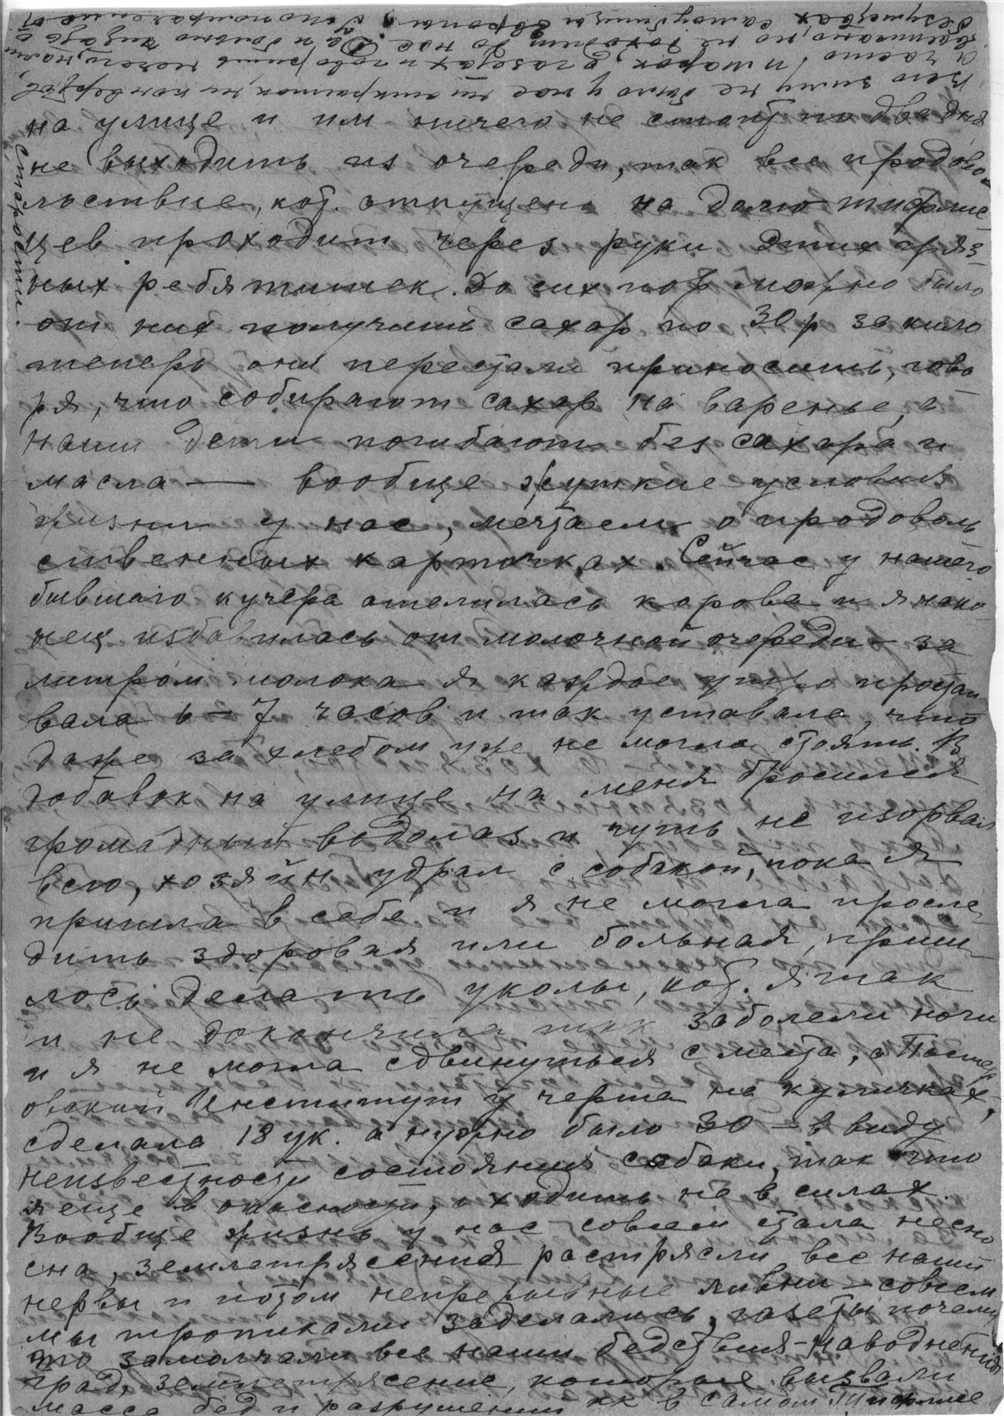 на улице и им ничего не стоит по два дня
не выходить из очереди, так все продово
льствие, кот. отпущено на долю тифлис
цев проходит через руки этих гряз
ных ребятишек. До сих пор можно было
от них получить сахар по 30 р за кило
теперь они перестали приносить, гово
ря, что собирают сахар на варенье, а
наши дети погибают без сахара и
масла — вообще жуткие условия
жизни у нас, мечтаем о продоволь
ственных карточках. Сейчас у нашего
бывшаго кучера отелилась корова и я нако
нец избавилась от молочной очереди – за
литром молока я каждое утро простаи
вала 6–7 часов и так уставала, что
даже за хлебом уже не могла стоять. В
добавок на улице на меня бросился
громадный водолаз и чуть не изорвал
всю, хозяин удрал с собакой, пока я
пришла в себе и я не могла просле
дить здоровая или больная, приш
лось делать уколы, кот. я так
и не докончила так заболели ноги
и я не могла сдвинуться с места, а Пастер
овский Институт у черта на куличках,
сделала 18 ук. а нужно было 30 – в виду
неизвестности состояния собаки, так что
я еще в опасности, а ходить не в силах.
Вообще жизнь у нас совсем стала несно
сна, землетрясения растрясли все наши
нервы и потом непрерывные ливни – совсем
мы тропиками заделались, газеты почему
то замолчали все наши бедствия – наводнения
град, землетрясение, которые вызвали
масса бед и разрушений как в самом Тифлисе
старости.
Всю зиму не было у нас ни открыток ни конвертов,
а часто и марок, о газетах и говорить нечего, нам
но не доходит до нас. Да и больно читать о
безумствах самоубийцы Европы